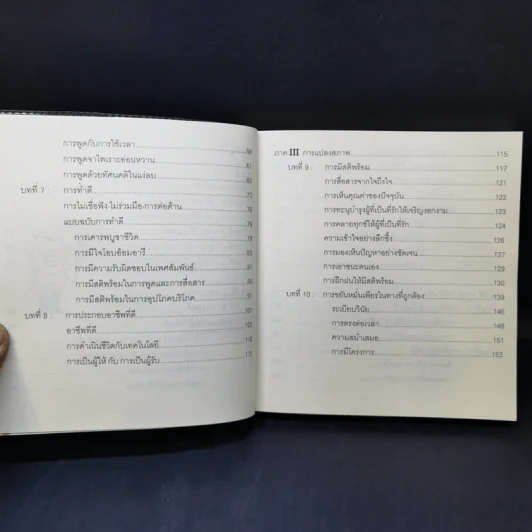 การพูดกับการใช้เวลา
การพูดจาไพเราะอ่อนหวาน
การพูดด้วยทัศนคติในแง่ลบ
บทที่ 7 : การทำดี 73
การไม่เชื่อฟัง-ไม่ร่วมมือ-การต่อต้าน
แบบฉบับการทำดี
การเคารพบูชาชีวิต
การมีใจโอบอ้อมอารี 83
การมีความรับผิดชอบในเพศสัมพันธ์
การมีสติพร้อมในการพูดและการสื่อสาร
การมีสติพร้อมในการอุปโภคบริโภค 91
บทที่ 8 : การประกอบอาชีพที่ดี 101
อาชีพที่ดี 107
การดำเนินชีวิตกับเทคโนโลยี 110
การเป็นผู้ให้ กับ การเป็นผู้รับ 112
ภาค III การแปลงสภาพ 115
บทที่ 9 : การมีสติพร้อม 117
การสื่อสารจากใจถึงใจ 121
การเห็นคุณค่าของปัจจุบัน 122
การทะนุบำรุงผู้ที่เป็นที่รักให้เจริญงอกงาม 123
การคลายทุกข์ให้ผู้ที่เป็นที่รัก 124
ความเข้าใจอย่างลึกซึ้ง 126
การมองเห็นปัญหาอย่างชัดเจน 127
การเอาชนะตนเอง 129
การฝึกฝนให้มีสติพร้อม 130
บทที่ 10 : การขยันหมั่นเพียรในทางที่ถูกต้อง 139
ระเบียบวินัย 146
การตรงต่อเวลา 148
ความสม่ำเสมอ 151
การมีโครงการ 153